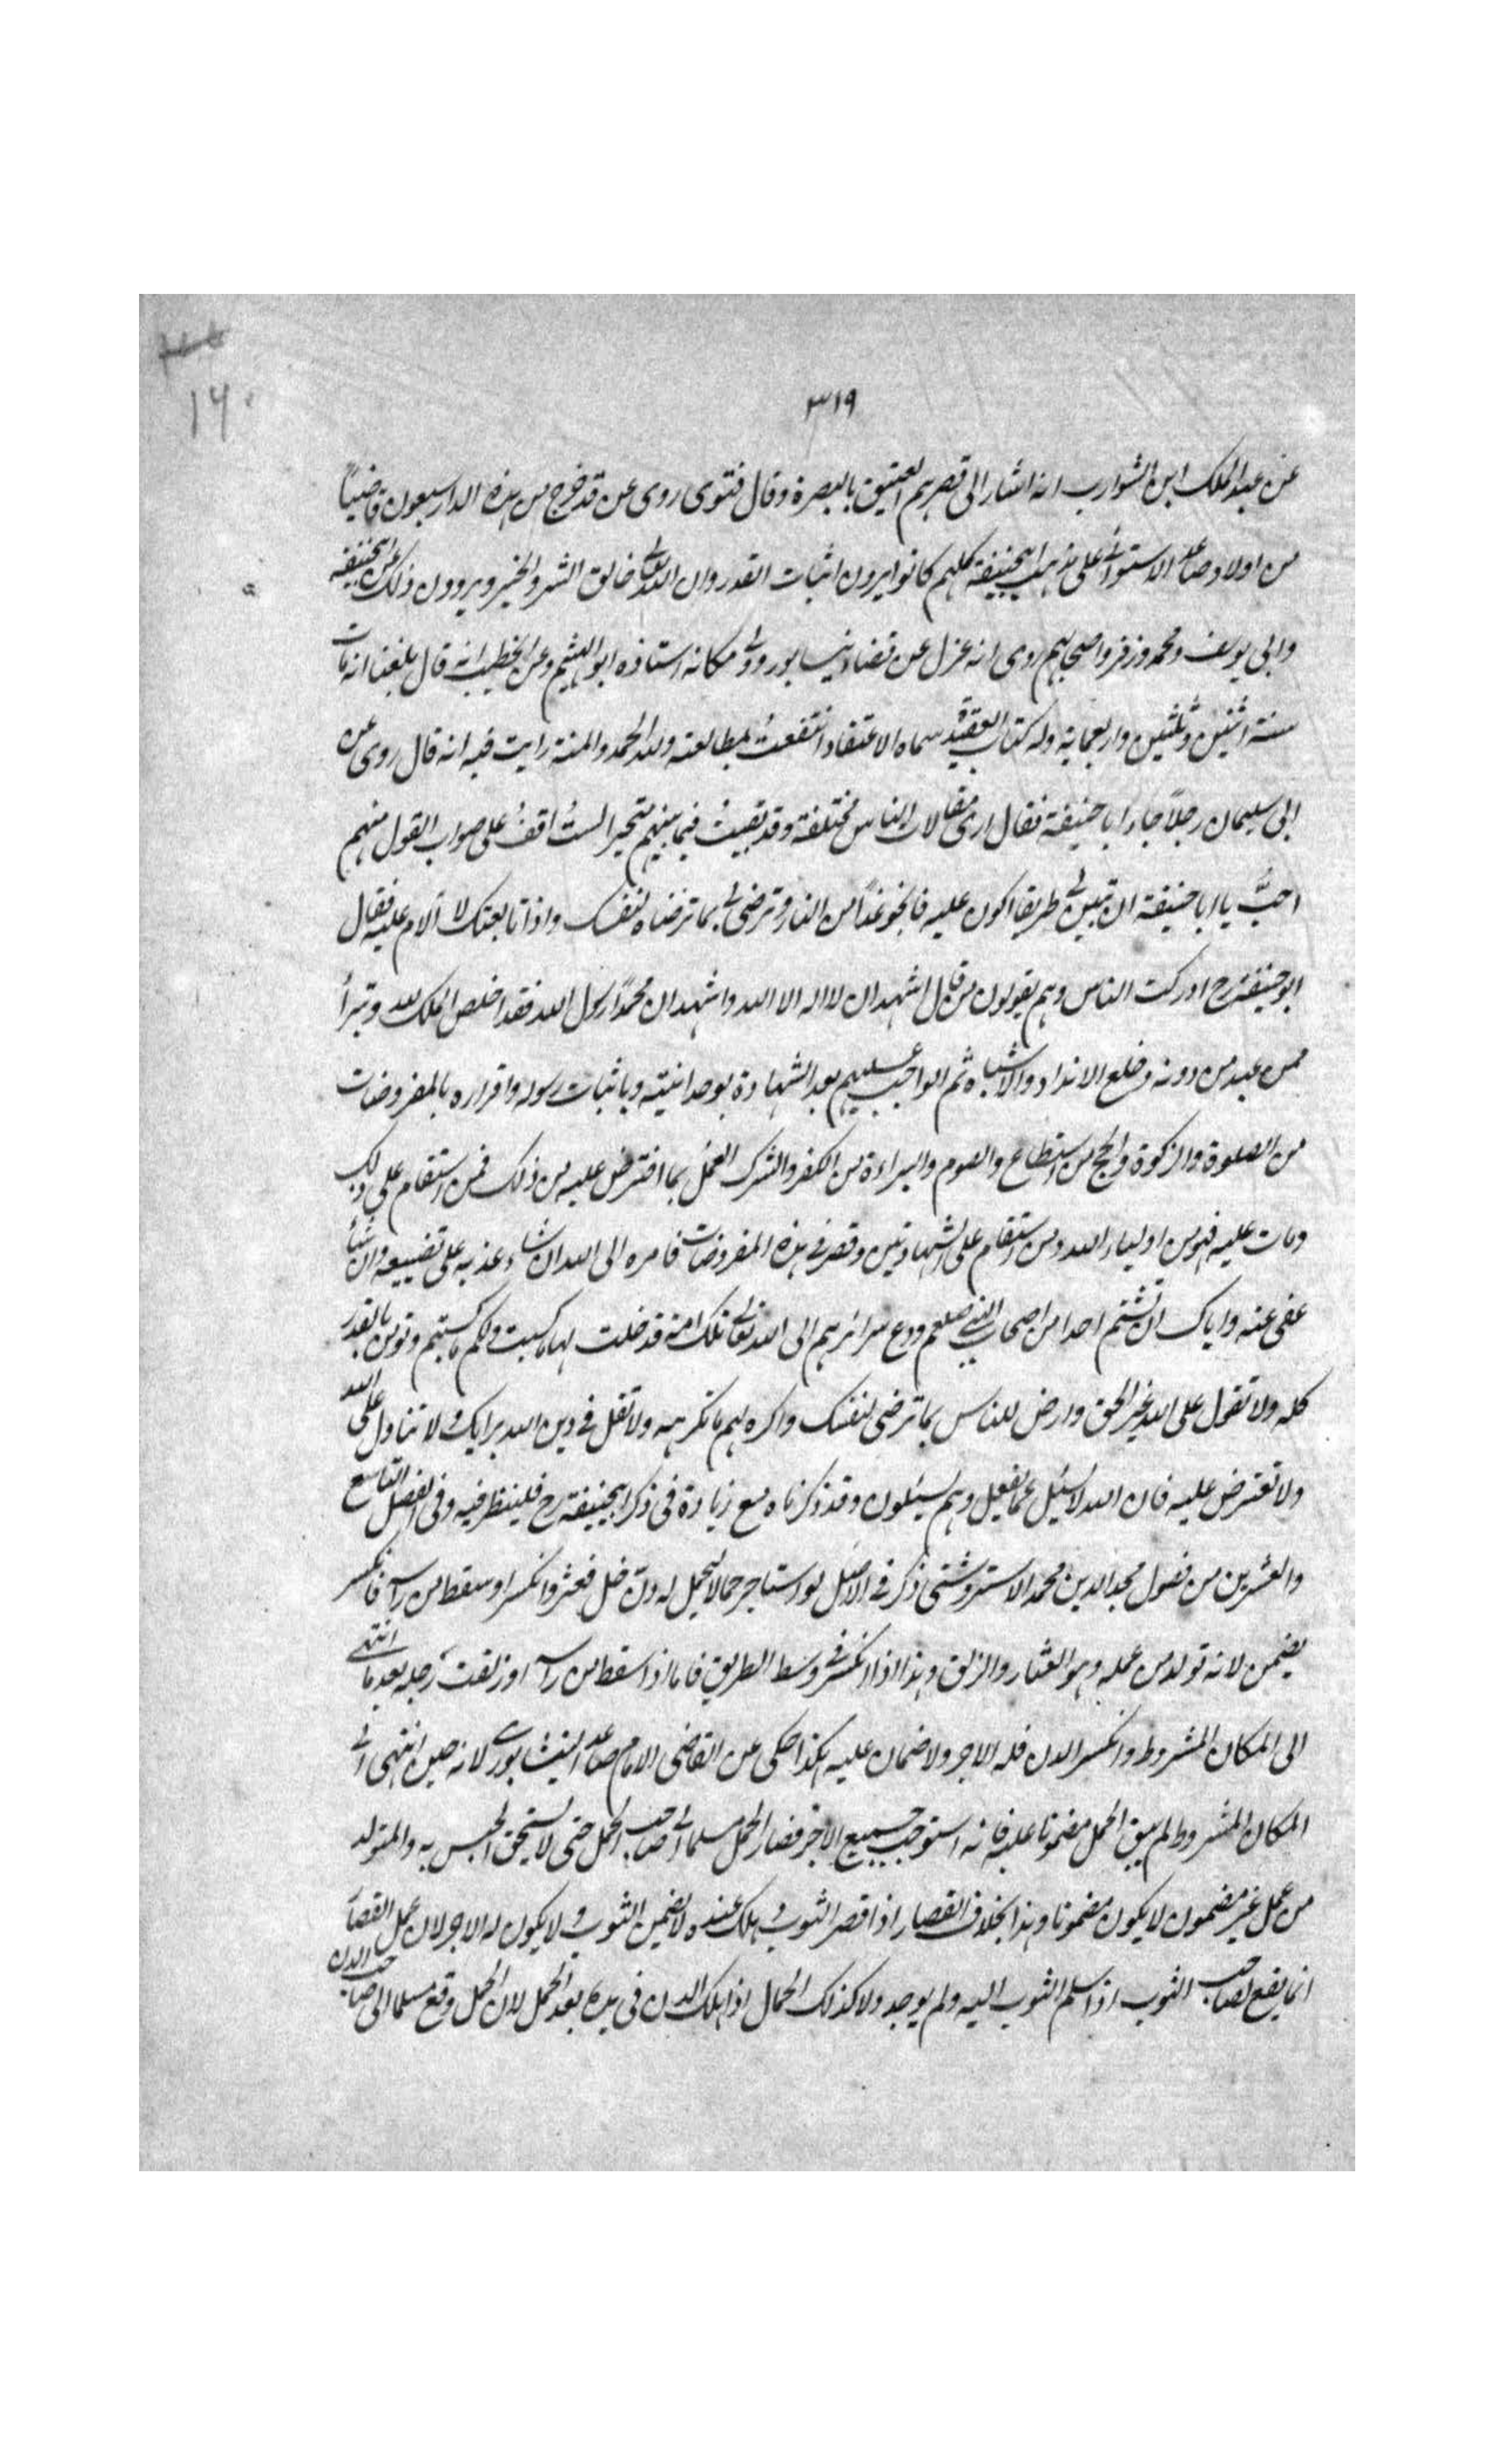 ٣١٩
١٦٠
عن عبد الملك ابن الشوارب انه اشار الى قصرهم العتيق بالبصرة وقال فتوى روى عن قد خرج من هذه الدار سبعون قاضياً
من اولاد صاعد الاستوائى على مذهب ابيحنيفة كلهم كانوا يرون اثبات القدر وان الله تعالى خالق الشر والخير ويروون ذلك عن ابيحنيفة
وابى يوسف ومحمد وزفر واصحابهم روى انه عزل عن قضاء نيسابور وولى مكانه استاذه ابو الهيثم وعن الخطيب انه قال بلغنا انه مات
سنة اثنين وثلثين واربعماية وله كتاب العقيدة سماه الاعتقاد انتفعت بمطالعته ولله الحمد والمنة رايت فيه انه قال روى عن
ابى سليمان رجلا جاء ابا حنيفة فقال ارى مقالات الناس مختلفة وقد بقيت فيما بينهم متحيرا لست اقف على صواب القول منهم
احبّ يا ابا حنيفة ان تبين لى طريقا اكون عليه فانجو غداً من النار وترضى لى بما ترضاه لنفسك واذا تابعتك لا الام عليه فقال
ابو حنيفة رح ادركت الناس وهم يقولون من قال اشهد ان لا اله الا الله واشهد ان محمداً رسول الله فقد اخلص الملك لله وتبرأ
ممن عبد من دونه وخلع الانداد والاشباه ثم الواجب عليهم بعد الشهادة بوحدانيته وباثبات رسوله واقراره بالمفروضات
من الصلوة والزكوة والحج من استطاع والصوم والبراءة من الكفر والشرك العمل بما افترض عليه من ذلك فمن استقام على ذلك
ومات عليه فهو من اولياء الله ومن استقام على الشهادتين وقصر فى هذه المفروضات فامره الى الله ان شاء عذبه على تضييعه وان شاء
عفى عنه واياك ان تشتم احدا من اصحاب النبى صلعم ودع سرائرهم الى الله تعالى تلك امة قد خلت لها ما كسبت ولكم ما كسبتم وتومن بالقدر
كله ولا تقول على الله غير الحق وارض للناس بما ترضى لنفسك واكره لهم ما تكرهه ولا تقل فى دين الله برايك ولا تتاول على الله
ولا تعترض عليه فان الله لا يسئل عما يفعل وهم يسئلون وقد ذكرناه مع زيادة فى ذكر ابيحنيفة رح فلينظر فيه وفى الفصل التاسع
والعشرين من فصول مجد الدين محمد الاستروشنى ذكر فى الاصل لو استاجر حمالا ليحمل له دن خل فعثر وانكسر او سقط من راسه فانكسر
يضمن لانه تولد من عمله وهو العثار والزلق وهذا اذا انكسر فى وسط الطريق فاما اذا سقط من راسه او زلقت رجله بعد ما انتهى
الى المكان المشروط وانكسر الدن فله الاجر ولا ضمان عليه هكذا حكى عن القاضى الامام صاعد النيشابورى لانه حين انتهى الى
المكان المشروط لم يبق الحمل مضمونا عليه فانه استوجب جميع الاجر فصار الحمل مسلما الى صاحب الحمل حتى لا يستحق الحبس به والمتولد
من عمل غير مضمون لا يكون مضمونا وهذا بخلاف القصار اذا قصر الثوب وهلك عنده لا يضمن الثوب ولا يكون له الاجر لان عمل القصار
انما يقع لصاحب الثوب اذا سلم الثوب اليه ولم يوجد ولا كذلك الحمال اذا هلك الدن فى يده بعد الحمل لان الحمل وقع مسلما الى صاحب الدن